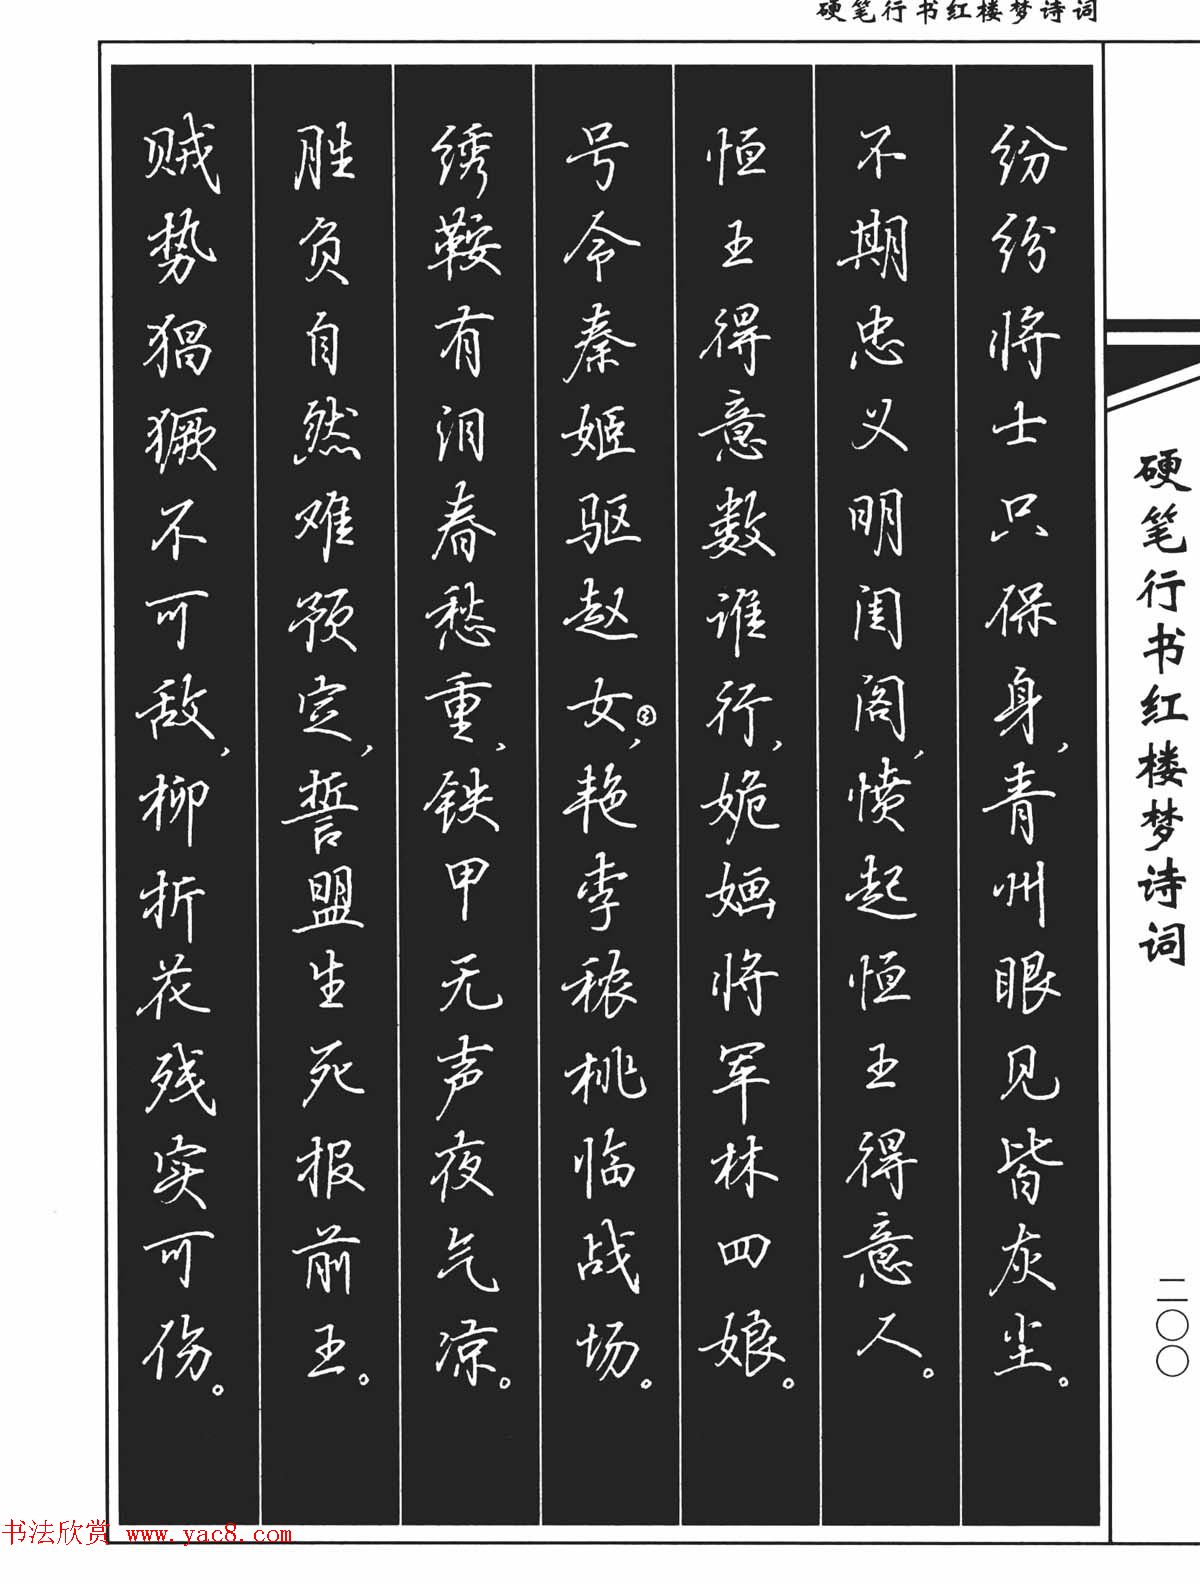 硬笔行书红楼梦诗词
纷纷将士只保身，青州眼见皆灰尘。
不期忠义明闺阁，愤起恒王得意人。
恒王得意数谁行，姽婳将军林四娘。
号令秦姬驱赵女，艳李秾桃临战场。
绣鞍有泪春愁重，铁甲无声夜气凉。
胜负自然难预定，誓盟生死报前王。
贼势猖獗不可敌，柳折花残实可伤。
硬笔行书红楼梦诗词
二〇〇
书法欣赏 www.yac8.com